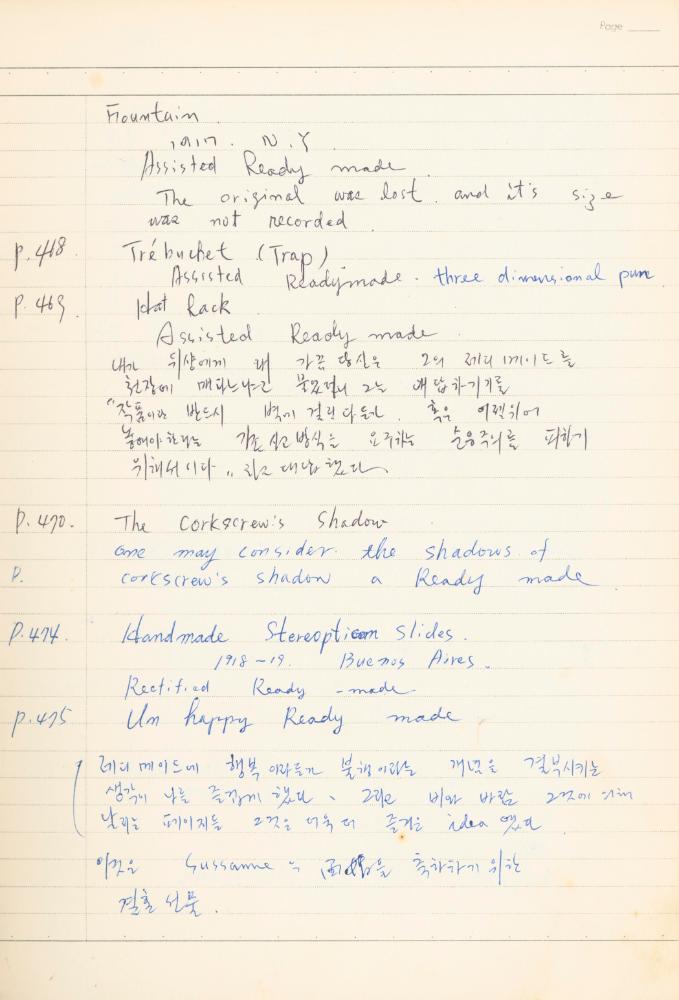 Page
Fountain
1917. N.Y
Assisted Ready made.
The original was lost. and it's size
was not recorded
p.468 Trébuchet (Trap)
Assisted Readymade. three dimensional pun
p.469 Hat Rack
Assisted Ready made.
내가 뒤샹에게 왜 가끔 당신은 그의 레디메이드를
천장에 매다느냐고 물었더니 그는 대답하기를
"작품이란 반드시 벽에 걸린다든가 혹은
놓여야 한다는 기존 사고방식을 요구하는 순응주의를 피하기
위해서이다" 라고 대답했다.
P.470. The corkscrew's Shadow
one may consider the shadows of
P. corkscrew's shadow a Ready made
P.474. Handmade Stereopticon Slides.
1918~19. Buenos Aires.
Rectified Ready-made.
p.475 Unhappy Ready made
레디메이드에 행복이라든가 불행이라는 개념을 결부시키는
생각이 나를 즐겁게 했다. 그리고 비와 바람 그것에 의해
날리는 페이지들 그것은 더욱 더 즐거운 idea 였다
이것은 Sussanne 을 축하하기 위한
결혼 선물.